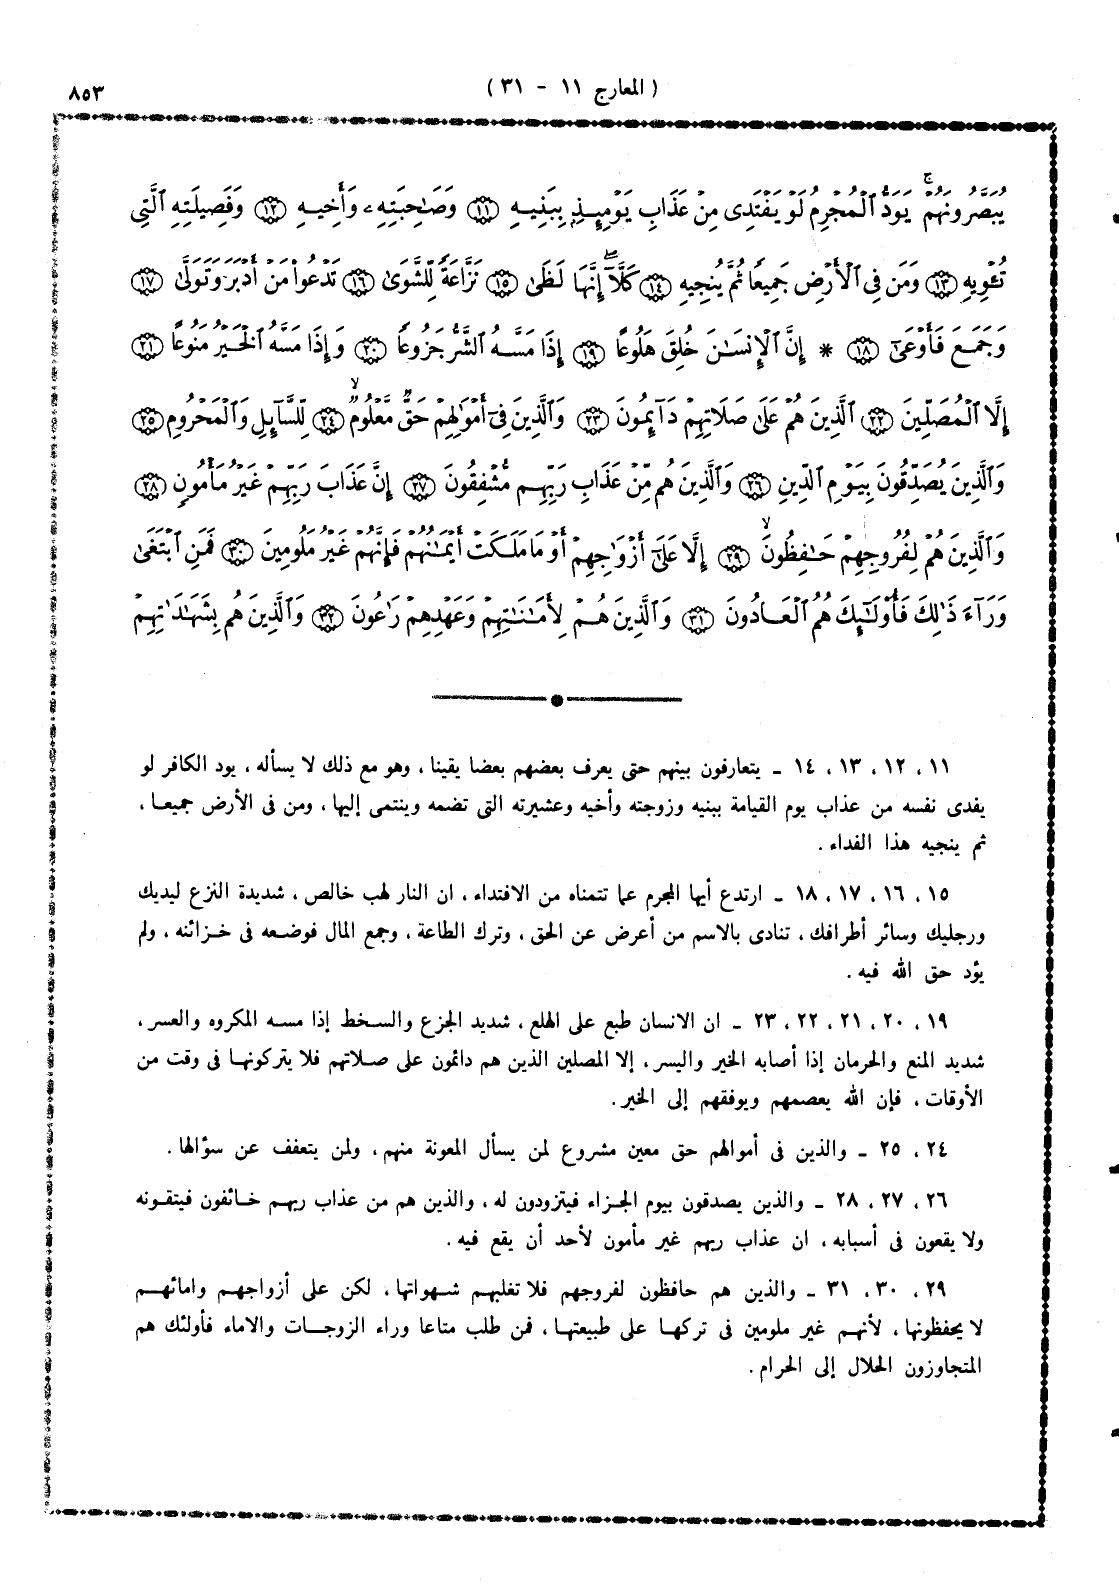 ( المعارج ١١ - ٣١ )
٨٥٣
يُبَصَّرُونَهُمْ ۚ يَوَدُّ ٱلْمُجْرِمُ لَوْ يَفْتَدِى مِنْ عَذَابِ يَوْمِئِذٍۭ بِبَنِيهِ ﴿١١﴾ وَصَـٰحِبَتِهِۦ وَأَخِيهِ ﴿١٢﴾ وَفَصِيلَتِهِ ٱلَّتِى
تُـْٔوِيهِ ﴿١٣﴾ وَمَن فِى ٱلْأَرْضِ جَمِيعًا ثُمَّ يُنجِيهِ ﴿١٤﴾ كَلَّآ ۖ إِنَّهَا لَظَىٰ ﴿١٥﴾ نَزَّاعَةً لِّلشَّوَىٰ ﴿١٦﴾ تَدْعُوا۟ مَنْ أَدْبَرَ وَتَوَلَّىٰ ﴿١٧﴾
وَجَمَعَ فَأَوْعَىٰٓ ﴿١٨﴾ * إِنَّ ٱلْإِنسَـٰنَ خُلِقَ هَلُوعًا ﴿١٩﴾ إِذَا مَسَّهُ ٱلشَّرُّ جَزُوعًا ﴿٢٠﴾ وَإِذَا مَسَّهُ ٱلْخَيْرُ مَنُوعًا ﴿٢١﴾
إِلَّا ٱلْمُصَلِّينَ ﴿٢٢﴾ ٱلَّذِينَ هُمْ عَلَىٰ صَلَاتِهِمْ دَآئِمُونَ ﴿٢٣﴾ وَٱلَّذِينَ فِىٓ أَمْوَٰلِهِمْ حَقٌّ مَّعْلُومٌ ﴿٢٤﴾ لِّلسَّآئِلِ وَٱلْمَحْرُومِ ﴿٢٥﴾
وَٱلَّذِينَ يُصَدِّقُونَ بِيَوْمِ ٱلدِّينِ ﴿٢٦﴾ وَٱلَّذِينَ هُم مِّنْ عَذَابِ رَبِّهِم مُّشْفِقُونَ ﴿٢٧﴾ إِنَّ عَذَابَ رَبِّهِمْ غَيْرُ مَأْمُونٍ ﴿٢٨﴾
وَٱلَّذِينَ هُمْ لِفُرُوجِهِمْ حَـٰفِظُونَ ﴿٢٩﴾ إِلَّا عَلَىٰٓ أَزْوَٰجِهِمْ أَوْ مَا مَلَكَتْ أَيْمَـٰنُهُمْ فَإِنَّهُمْ غَيْرُ مَلُومِينَ ﴿٣٠﴾ فَمَنِ ٱبْتَغَىٰ
وَرَآءَ ذَٰلِكَ فَأُو۟لَـٰٓئِكَ هُمُ ٱلْعَادُونَ ﴿٣١﴾ وَٱلَّذِينَ هُمْ لِأَمَـٰنَـٰتِهِمْ وَعَهْدِهِمْ رَٰعُونَ ﴿٣٢﴾ وَٱلَّذِينَ هُم بِشَهَـٰدَٰتِهِمْ
١١ ، ١٢ ، ١٣ ، ١٤ ـ يتعارفون بينهم حتى يعرف بعضهم بعضا يقينا ، وهو مع ذلك لا يسأله ، يود الكافر لو
يفدى نفسه من عذاب يوم القيامة ببنيه وزوجته وأخيه وعشيرته التى تضمه وينتمى إليها ، ومن فى الأرض جميعا ،
ثم ينجيه هذا الفداء .
١٥ ، ١٦ ، ١٧ ، ١٨ ـ ارتدع أيها المجرم عما تتمناه من الافتداء ، ان النار لهب خالص ، شديدة النزع ليديك
ورجليك وسائر أطرافك ، تنادى بالاسم من أعرض عن الحق ، وترك الطاعة ، وجمع المال فوضعه فى خزائنه ، ولم
يؤد حق الله فيه .
١٩ ، ٢٠ ، ٢١ ، ٢٢ ، ٢٣ ـ ان الانسان طبع على الهلع ، شديد الجزع والسخط إذا مسه المكروه والعسر ،
شديد المنع والحرمان إذا أصابه الخير واليسر ، إلا المصلين الذين هم دائمون على صلاتهم فلا يتركونها فى وقت من
الأوقات ، فإن الله يعصمهم ويوفقهم إلى الخير .
٢٤ ، ٢٥ ـ والذين فى أموالهم حق معين مشروع لمن يسأل المعونة منهم ، ولمن يتعفف عن سؤالها .
٢٦ ، ٢٧ ، ٢٨ ـ والذين يصدقون بيوم الجزاء فيتزودون له ، والذين هم من عذاب ربهم خائفون فيتقونه
ولا يقعون فى أسبابه ، ان عذاب ربهم غير مأمون لأحد أن يقع فيه .
٢٩ ، ٣٠ ، ٣١ ـ والذين هم حافظون لفروجهم فلا تغلبهم شهواتها ، لكن على أزواجهم وامائهم
لا يحفظونها ، لأنهم غير ملومين فى تركها على طبيعتها ، فمن طلب متاعا وراء الزوجات والاماء فأولئك هم
المتجاوزون الحلال إلى الحرام .